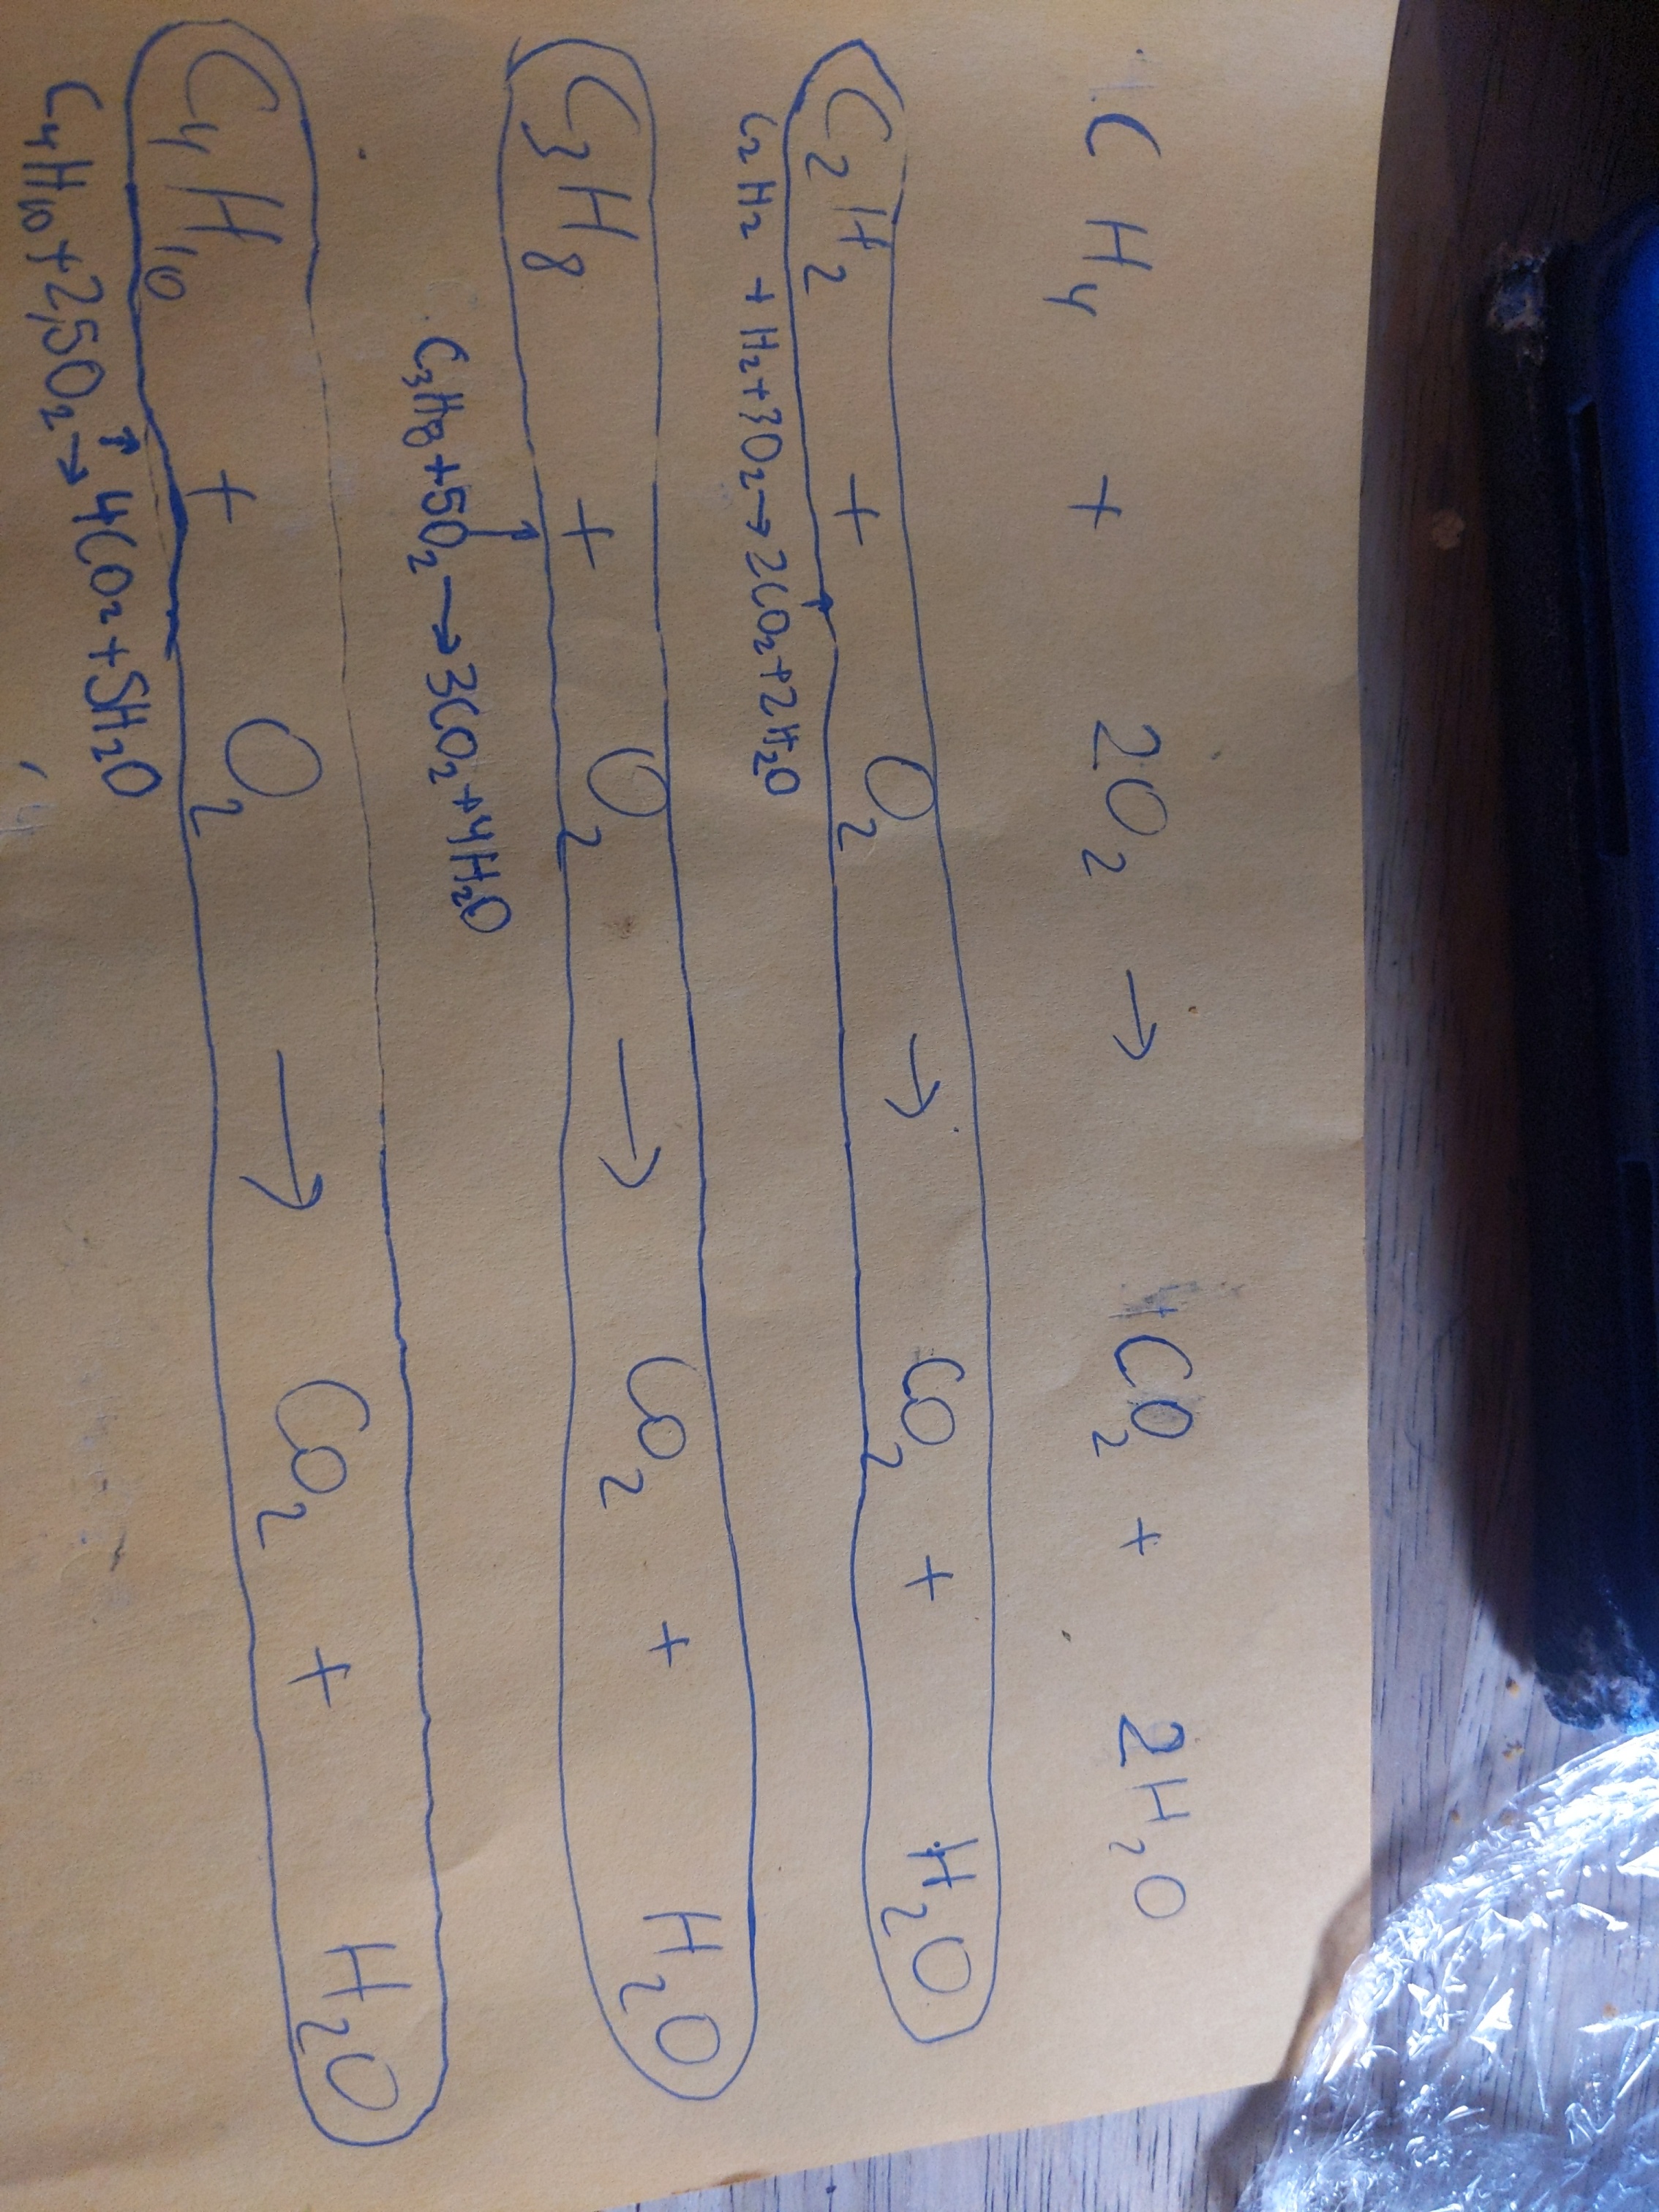 CH₄ + 2O₂ → 1CO₂ + 2H₂O
C₂H₂ + O₂ → CO₂ + H₂O
C₂H₂ + H₂+3O₂→2CO₂+2H₂O
C₃H₈ + O₂ → CO₂ + H₂O
C₃H₈+5O₂→3CO₂+4H₂O
C₄H₁₀ + O₂ → CO₂ + H₂O
C₄H₁₀+2,5O₂→4CO₂+5H₂O